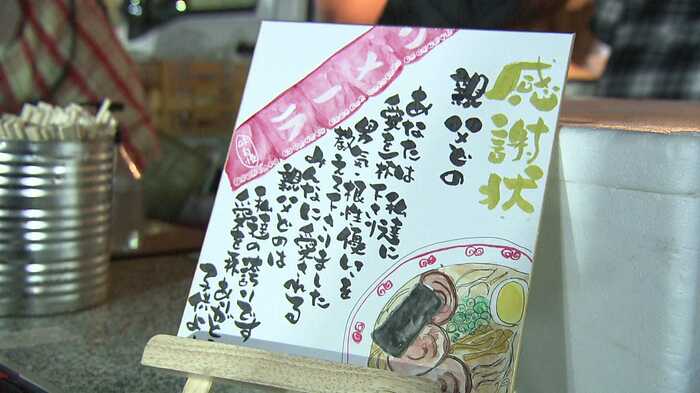 感謝状
親父どの
あなたは 私達に
愛を一杯 下さり
男気・根性優しさを
教えて下さりました
みんなに愛される
親父どのは
私達の誇りです
愛を込 ありがと
子供よ
ラーメン